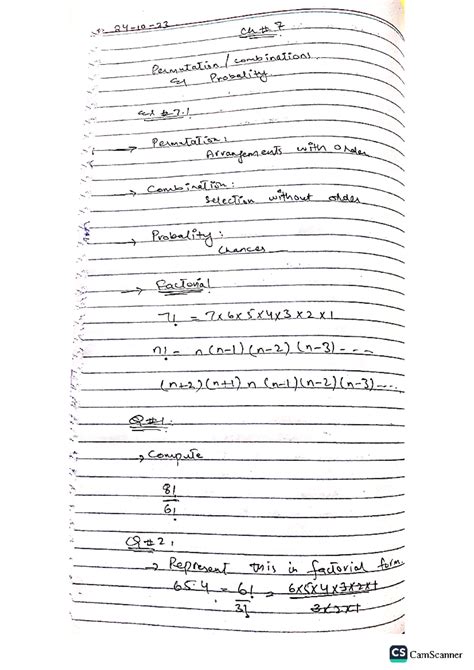 24-10-23
Ch # 7
Permutation/combinations
& Probality
Ex # 7.1
→ Permutation:
Arrangements with order
→ Combination:
Selection without order
→ Probality:
Chances
→ Factorial
7! = 7x6x5x4x3x2x1
n! = n(n-1)(n-2)(n-3)----
(n+2)(n+1)n(n-1)(n-2)(n-3)----
Q#1:
→ Compute
8!
6!
Q#2:
→ Represent this in factorial form
6.5.4 = 6! = 6x5x4x3x2x1
3! 3x2x1
CS CamScanner